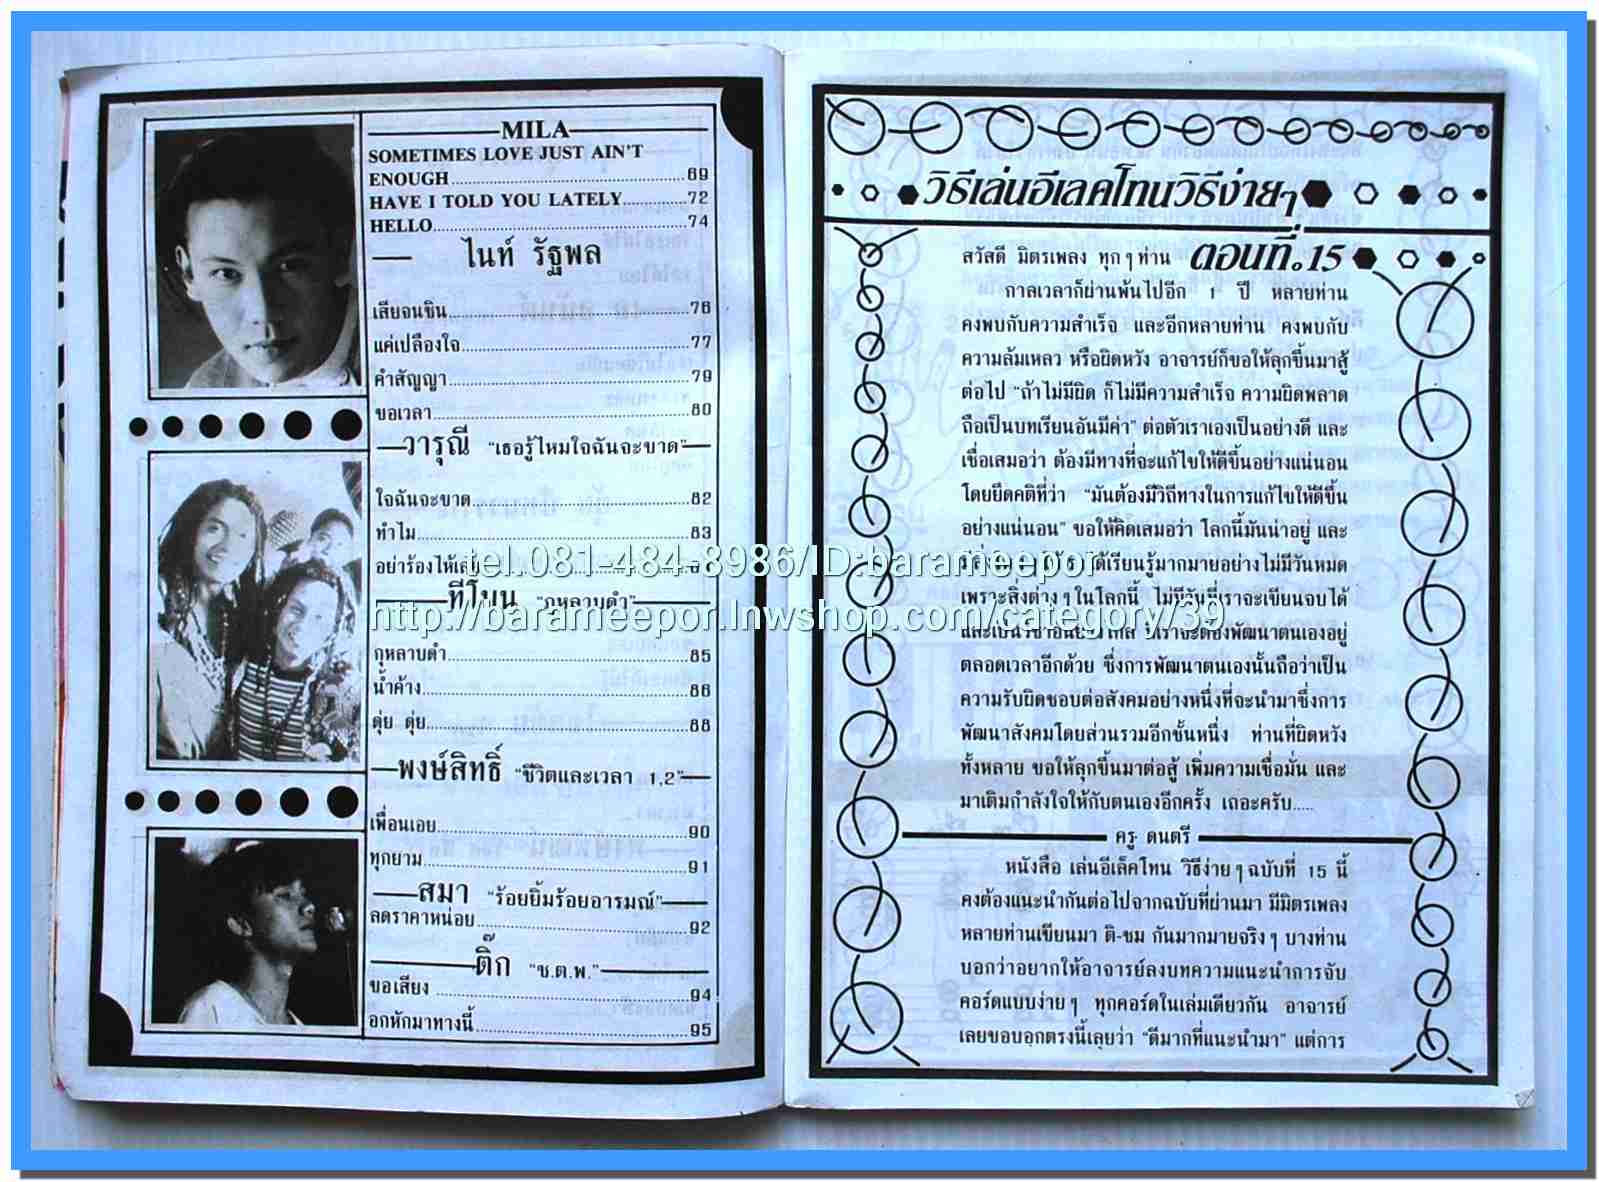 MILA
SOMETIMES LOVE JUST AIN'T
ENOUGH 69
HAVE I TOLD YOU LATELY 72
HELLO 74
ไนท์ รัฐพล
เสียจนชิน 76
แค่เปลืองใจ 77
คำสัญญา 79
ขอเวลา 80
วารุณี "เธอรู้ไหมใจฉันจะขาด"
ใจฉันจะขาด 82
ทำไม 83
อย่าร้องไห้
ทีโบน "กุหลาบดำ"
กุหลาบดำ 85
น้ำค้าง 86
ตุ่ย ตุ่ย 88
พงษ์สิทธิ์ "ชีวิตและเวลา 1,2"
เพื่อนเอย 90
ทุกยาม 91
สมา "ร้อยยิ้มร้อยอารมณ์"
ลดราคาหน่อย 92
ติ๊ก "ช.ต.พ."
ขอเสียง 94
อกหักมาทางนี้ 95
วิธีเล่นอีเลคโทนวิธีง่ายๆ
ตอนที่ 15
สวัสดี มิตรเพลง ทุกๆท่าน
กาลเวลาก็ผ่านพ้นไปอีก 1 ปี หลายท่าน
คงพบกับความสำเร็จ และอีกหลายท่าน คงพบกับ
ความล้มเหลว หรือผิดหวัง อาจารย์ก็ขอให้ลุกขึ้นมาสู้
ต่อไป "ถ้าไม่มีผิด ก็ไม่มีความสำเร็จ ความผิดพลาด
ถือเป็นบทเรียนอันมีค่า" ต่อตัวเราเองเป็นอย่างดี และ
เชื่อเสมอว่า ต้องมีทางที่จะแก้ไขให้ดีขึ้นอย่างแน่นอน
โดยยึดคติที่ว่า "มันต้องมีวิถีทางในการแก้ไขให้ดีขึ้น
อย่างแน่นอน" ขอให้คิดเสมอว่า โลกนี้มันน่าอยู่ และ
ได้เรียนรู้มากมายอย่างไม่มีวันหมด
เพราะสิ่งต่างๆในโลกนี้ ไม่มีวันที่เราจะเขียนจบได้
เราจะต้องพัฒนาตนเองอยู่
ตลอดเวลาอีกด้วย ซึ่งการพัฒนาตนเองนั้นถือว่าเป็น
ความรับผิดชอบต่อสังคมอย่างหนึ่งที่จะนำมาซึ่งการ
พัฒนาสังคมโดยส่วนรวมอีกชั้นหนึ่ง ท่านที่ผิดหวัง
ทั้งหลาย ขอให้ลุกขึ้นมาต่อสู้ เพิ่มความเชื่อมั่น และ
มาเติมกำลังใจให้กับตนเองอีกครั้ง เถอะครับ.....
ครู ดนตรี
หนังสือ เล่นอีเล็คโทน วิธีง่ายๆ ฉบับที่ 15 นี้
คงต้องแนะนำกันต่อไปจากฉบับที่ผ่านมา มีมิตรเพลง
หลายท่านเขียนมา ติ-ชม กันมากมายจริงๆ บางท่าน
บอกว่าอยากให้อาจารย์ลงบทความแนะนำการจับ
คอร์ดแบบง่ายๆ ทุกคอร์ดในเล่มเดียวกัน อาจารย์
เลยขอบอกตรงนี้เลยว่า "ดีมากที่แนะนำมา" แต่การ
tel.081-484-8986/ID:barameepor
http://barameepor.lnwshop.com/category/39